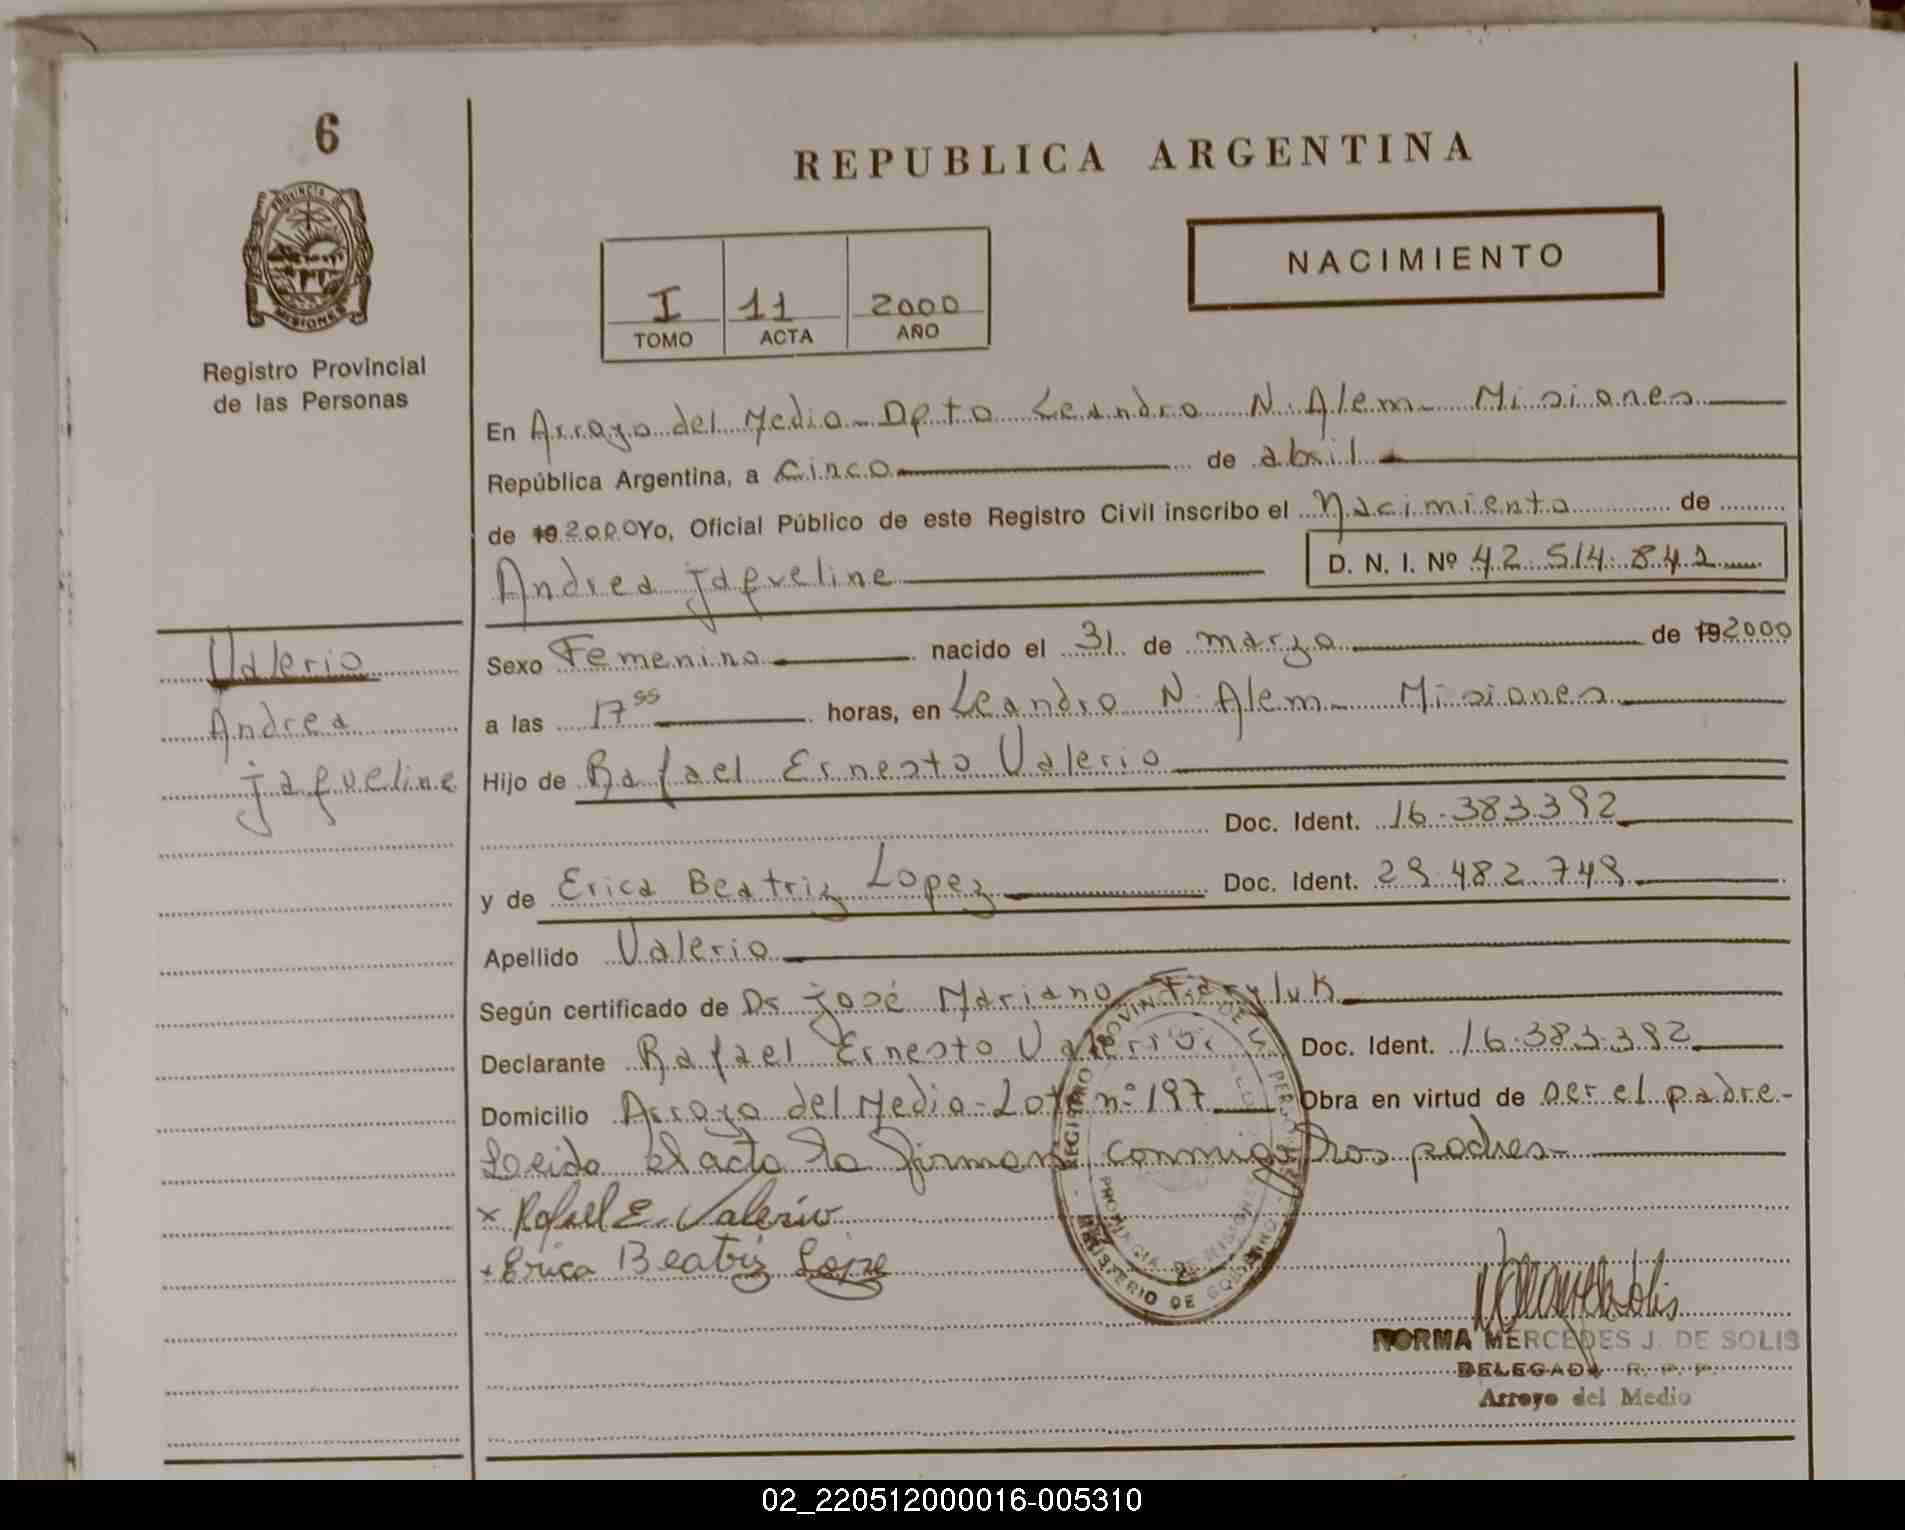 6
REPUBLICA ARGENTINA
PROVINCIA DE
MISIONES
Registro Provincial
de las Personas
NACIMIENTO
I 11 2000
TOMO ACTA AÑO
En Arroyo del Medio - Dpto Leandro N. Alem - Misiones
República Argentina, a cinco de abril
de 19 2000 Yo, Oficial Público de este Registro Civil inscribo el Nacimiento de
Andrea jaqueline
D. N. I. Nº 42.514.841
Sexo Femenino nacido el 31 de marzo de 19 2000
a las 17 55 horas, en Leandro N. Alem - Misiones
Hijo de Rafael Ernesto Valerio
Doc. Ident. 16.383.392
y de Erica Beatriz Lopez Doc. Ident. 29.482.749
Apellido Valerio
Según certificado de Dr josé Mariano
Declarante Rafael Ernesto Valerio Doc. Ident. 16.383.392
Domicilio Arroyo del Medio - Lote nº 197 Obra en virtud de ser el padre -
Leida el acta la firman conmigo los padres
x Rafael E. Valerio
x Erica Beatriz Lopez
Valerio
Andrea
jaqueline
REGISTRO PROVINCIAL DE LAS PERSONAS
PROVINCIA DE MISIONES
MINISTERIO DE GOBIERNO
NORMA MERCEDES J. DE SOLIS
DELEGADA R. P. P.
Arroyo del Medio
02_220512000016-005310